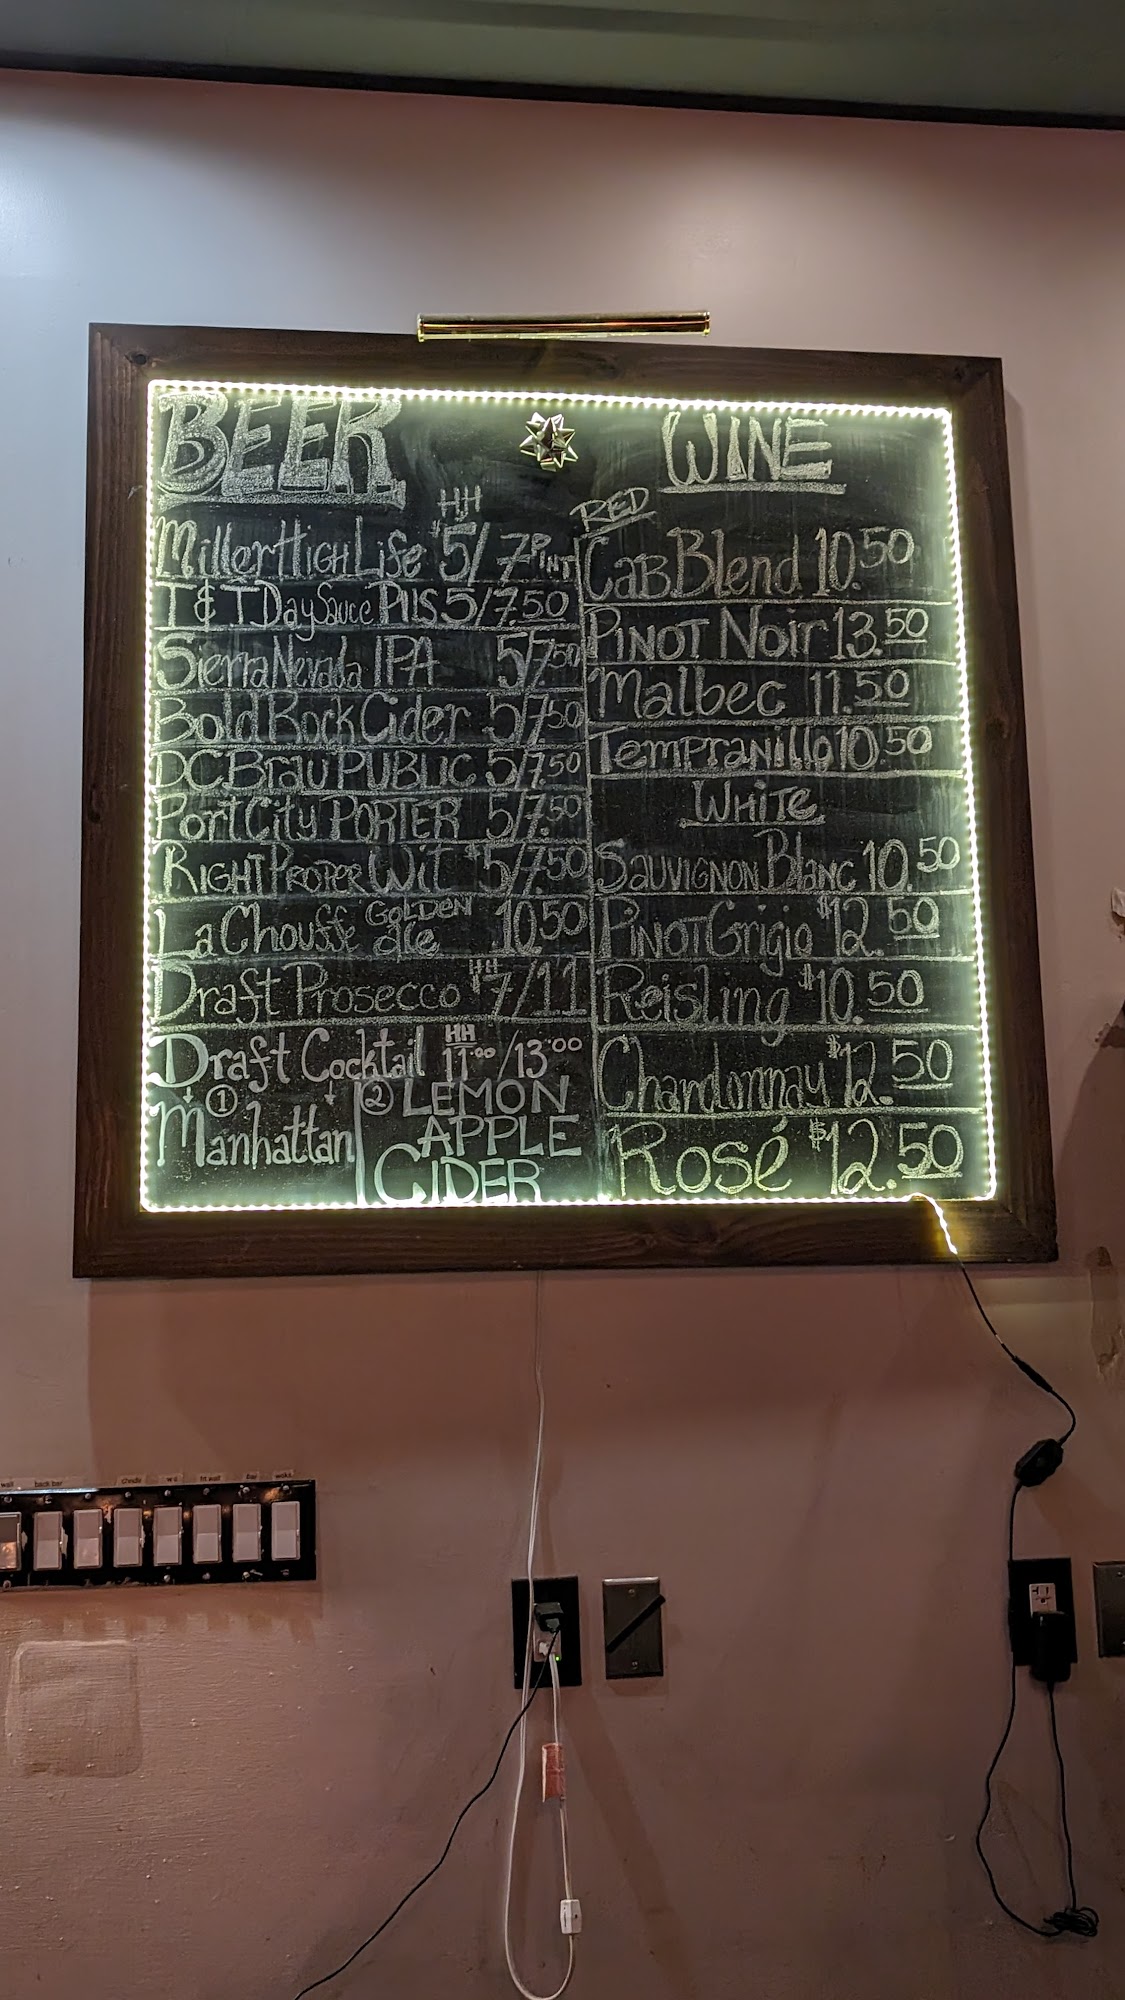 BEER
HH
Miller HIGH Life $5/7 PINT
T & T Day Sauce PILS 5/7.50
Sierra Nevada IPA 5/7.50
Bold Rock Cider 5/7.50
DC Brau PUBLIC 5/7.50
Port City PORTER 5/7.50
RIGHT PROPER Wit $5/7.50
La Chouffe GOLDEN ale 10.50
Draft Prosecco HH $7/11
Draft Cocktail HH 11.00/13.00
① Manhattan
② LEMON
APPLE
CIDER
WINE
RED
CAB Blend 10.50
PINOT Noir 13.50
Malbec 11.50
Tempranillo 10.50
WHITE
SAUVIGNON Blanc 10.50
PINOT Grigio $12.50
Reisling $10.50
Chardonnay $12.50
Rosé $12.50
back bar
bar